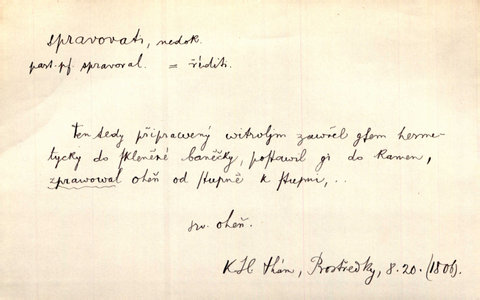 spravovati, nedok.
part. pf. spravoval. = říditi.
Ten tedy připrawený witrolým zawřel gsem herme-
tycky do skleněné baněčky, postawil gi do kamen,
zprawowal oheň od stupně k stupni, ..
sv. oheň.
Prostředky, 8.20. (1806).